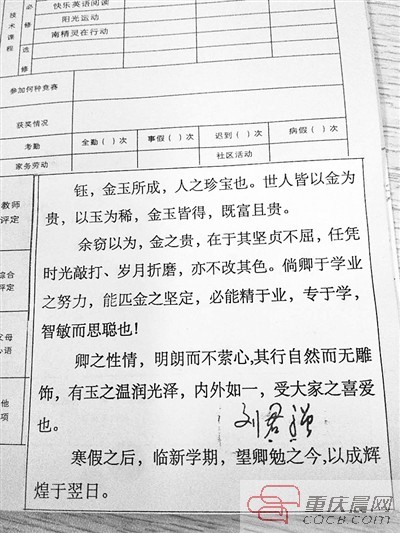 技术课程
必修
选修
快乐英语阅读
阳光运动
南精灵在行动
参加何种竞赛
获奖情况
考勤 全勤( )次 事假( )次 迟到( )次 病假( )次
家务劳动 社区活动
教师
评定
综合
评定
父母
心语
其他
事项
钰，金玉所成，人之珍宝也。世人皆以金为
贵，以玉为稀，金玉皆得，既富且贵。
余窃以为，金之贵，在于其坚贞不屈，任凭
时光敲打、岁月折磨，亦不改其色。倘卿于学业
之努力，能匹金之坚定，必能精于业，专于学，
智敏而思聪也！
卿之性情，明朗而不萦心，其行自然而无雕
饰，有玉之温润光泽，内外如一，受大家之喜爱
也。
寒假之后，临新学期，望卿勉之今，以成辉
煌于翌日。
重庆晨网
CQCB.com